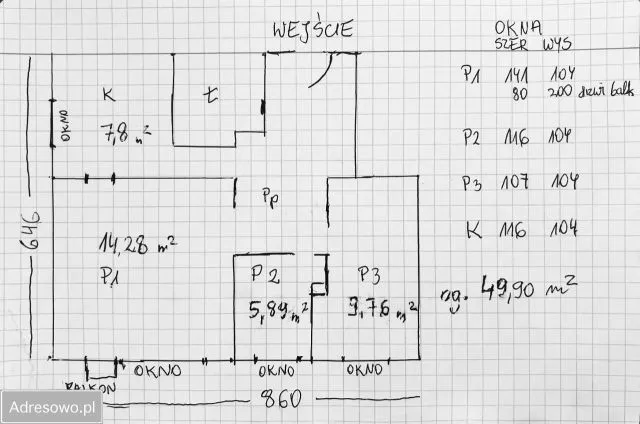 WEJŚCIE
OKNA
SZER WYS
P1 141 104
80 200 drzwi balk
P2 116 104
P3 107 104
K 116 104
og. 49,90 m²
K
7,8 m²
OKNO
Ł
Pp
14,28 m²
P1
P2
5,89 m²
P3
9,76 m²
646
OKNO
OKNO
OKNO
BALKON
860
Adresowo.pl